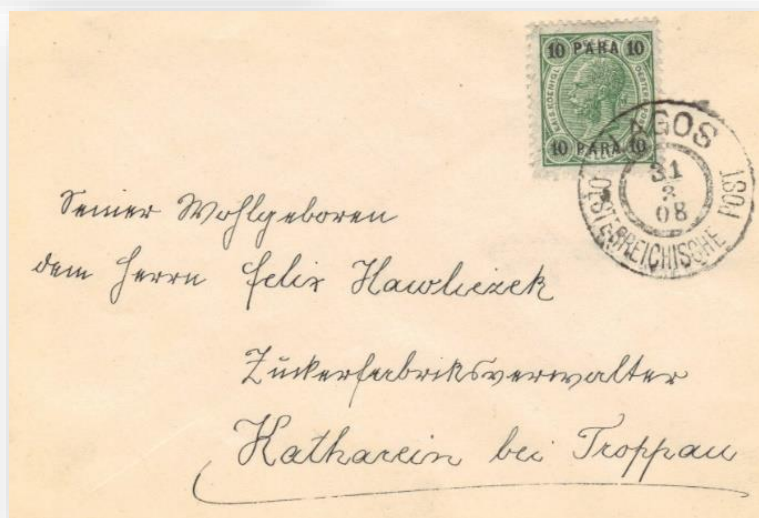 10 PARA 10
KAIS. KOENIGL. OESTERR. POST
10 PARA 10
LAGOS
31
3
08
OESTERREICHISCHE POST
Seiner Wohlgeboren
dem Herrn Felix Hawliczek
Zuckerfabriksverwalter
Katharein bei Troppau